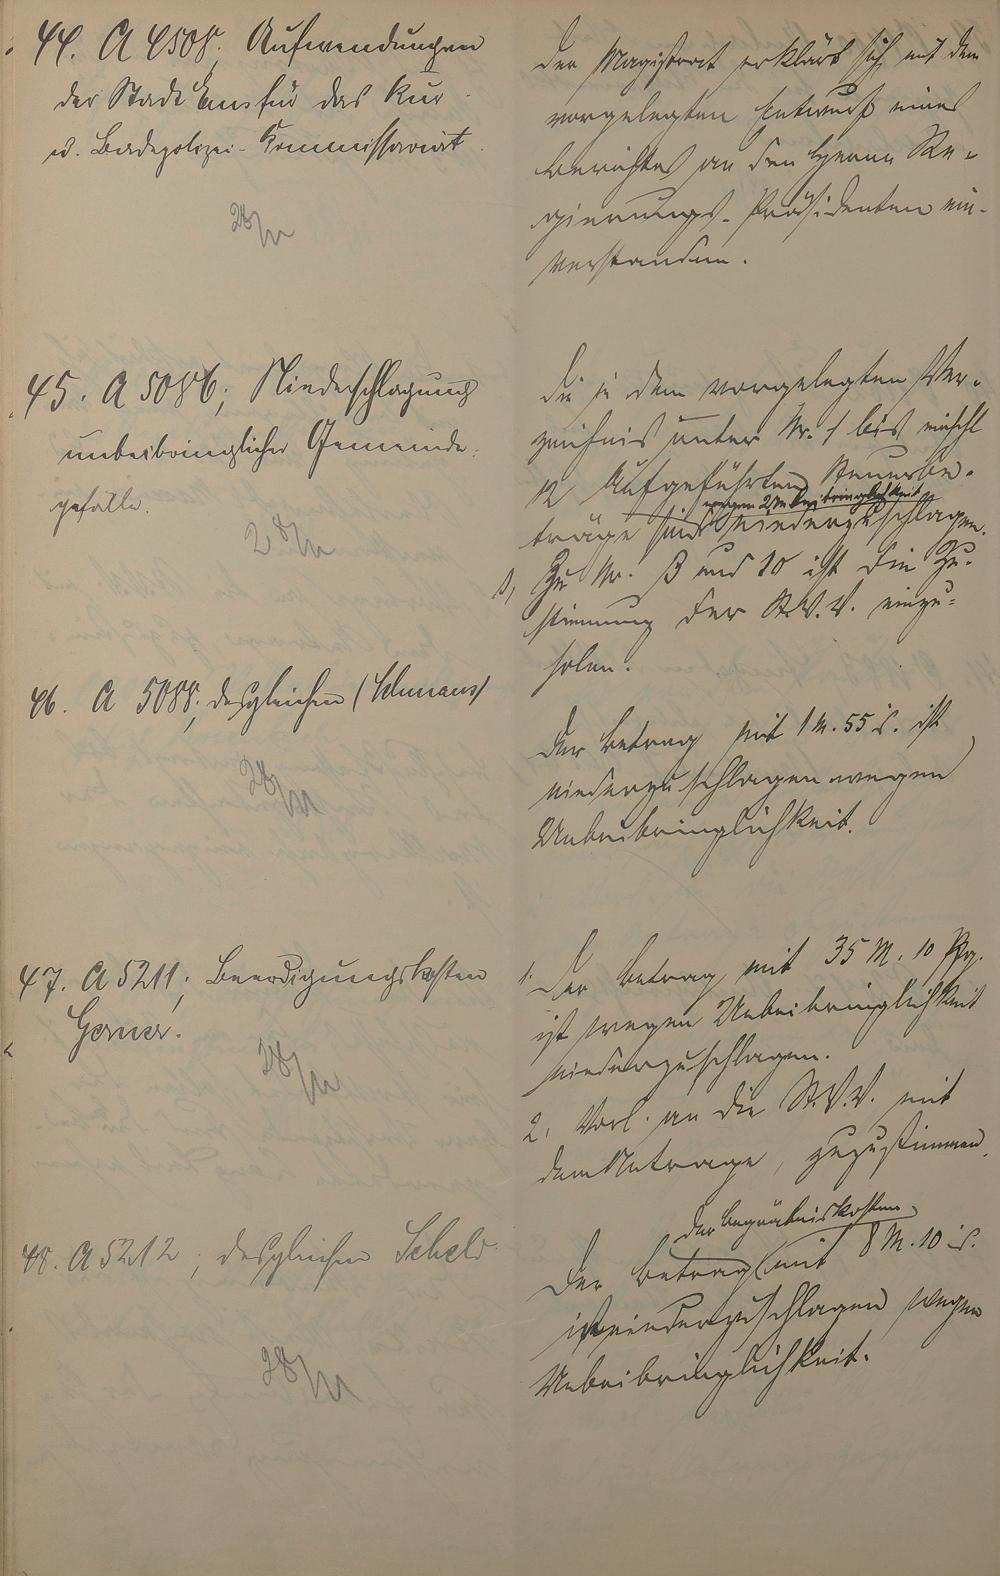 44. A 4508. Aufwendungen
der Stadt Ems für das Kur
u. Badepolizei-Kommissariat
28/11
Der Magistrat erklärt sich mit dem
vorgelegten Entwurf eines
Berichtes an den Herrn Re-
gierungs-Präsidenten ein-
verstanden.
45. A 5086; Niederschlagung
unbeibringlicher Gemeinde-
gefälle.
28/11
Die in dem vorgelegten Ver-
zeichnis unter Nr. 1 bis einschl
12 Aufgeführten Steuerbe-
wegen Unbeibringlichkeit
träge sind niederzuschlagen.
Zu Nr. 3 und 10 ist die Zu-
stimmung der St.V.V. einzu-
holen.
46. A 5088; desgleichen
28/11
Der Betrag mit 1 M. 55 ist
niederzuschlagen wegen
Unbeibringlichkeit.
47. A 5211; Beerdigungskosten
Gerner.
28/11
1. Der Betrag mit 35 M. 10 Pfg.
ist wegen Unbeibringlichkeit
niederzuschlagen.
2. Vorl. an die St.V.V. mit
dem Antrage, zuzustimmen.
48. A 5212; desgleichen Scheld
28/11
der Begräbniskosten
Der Betrag mit 8 M. 10
ist niederzuschlagen wegen
Unbeibringlichkeit.